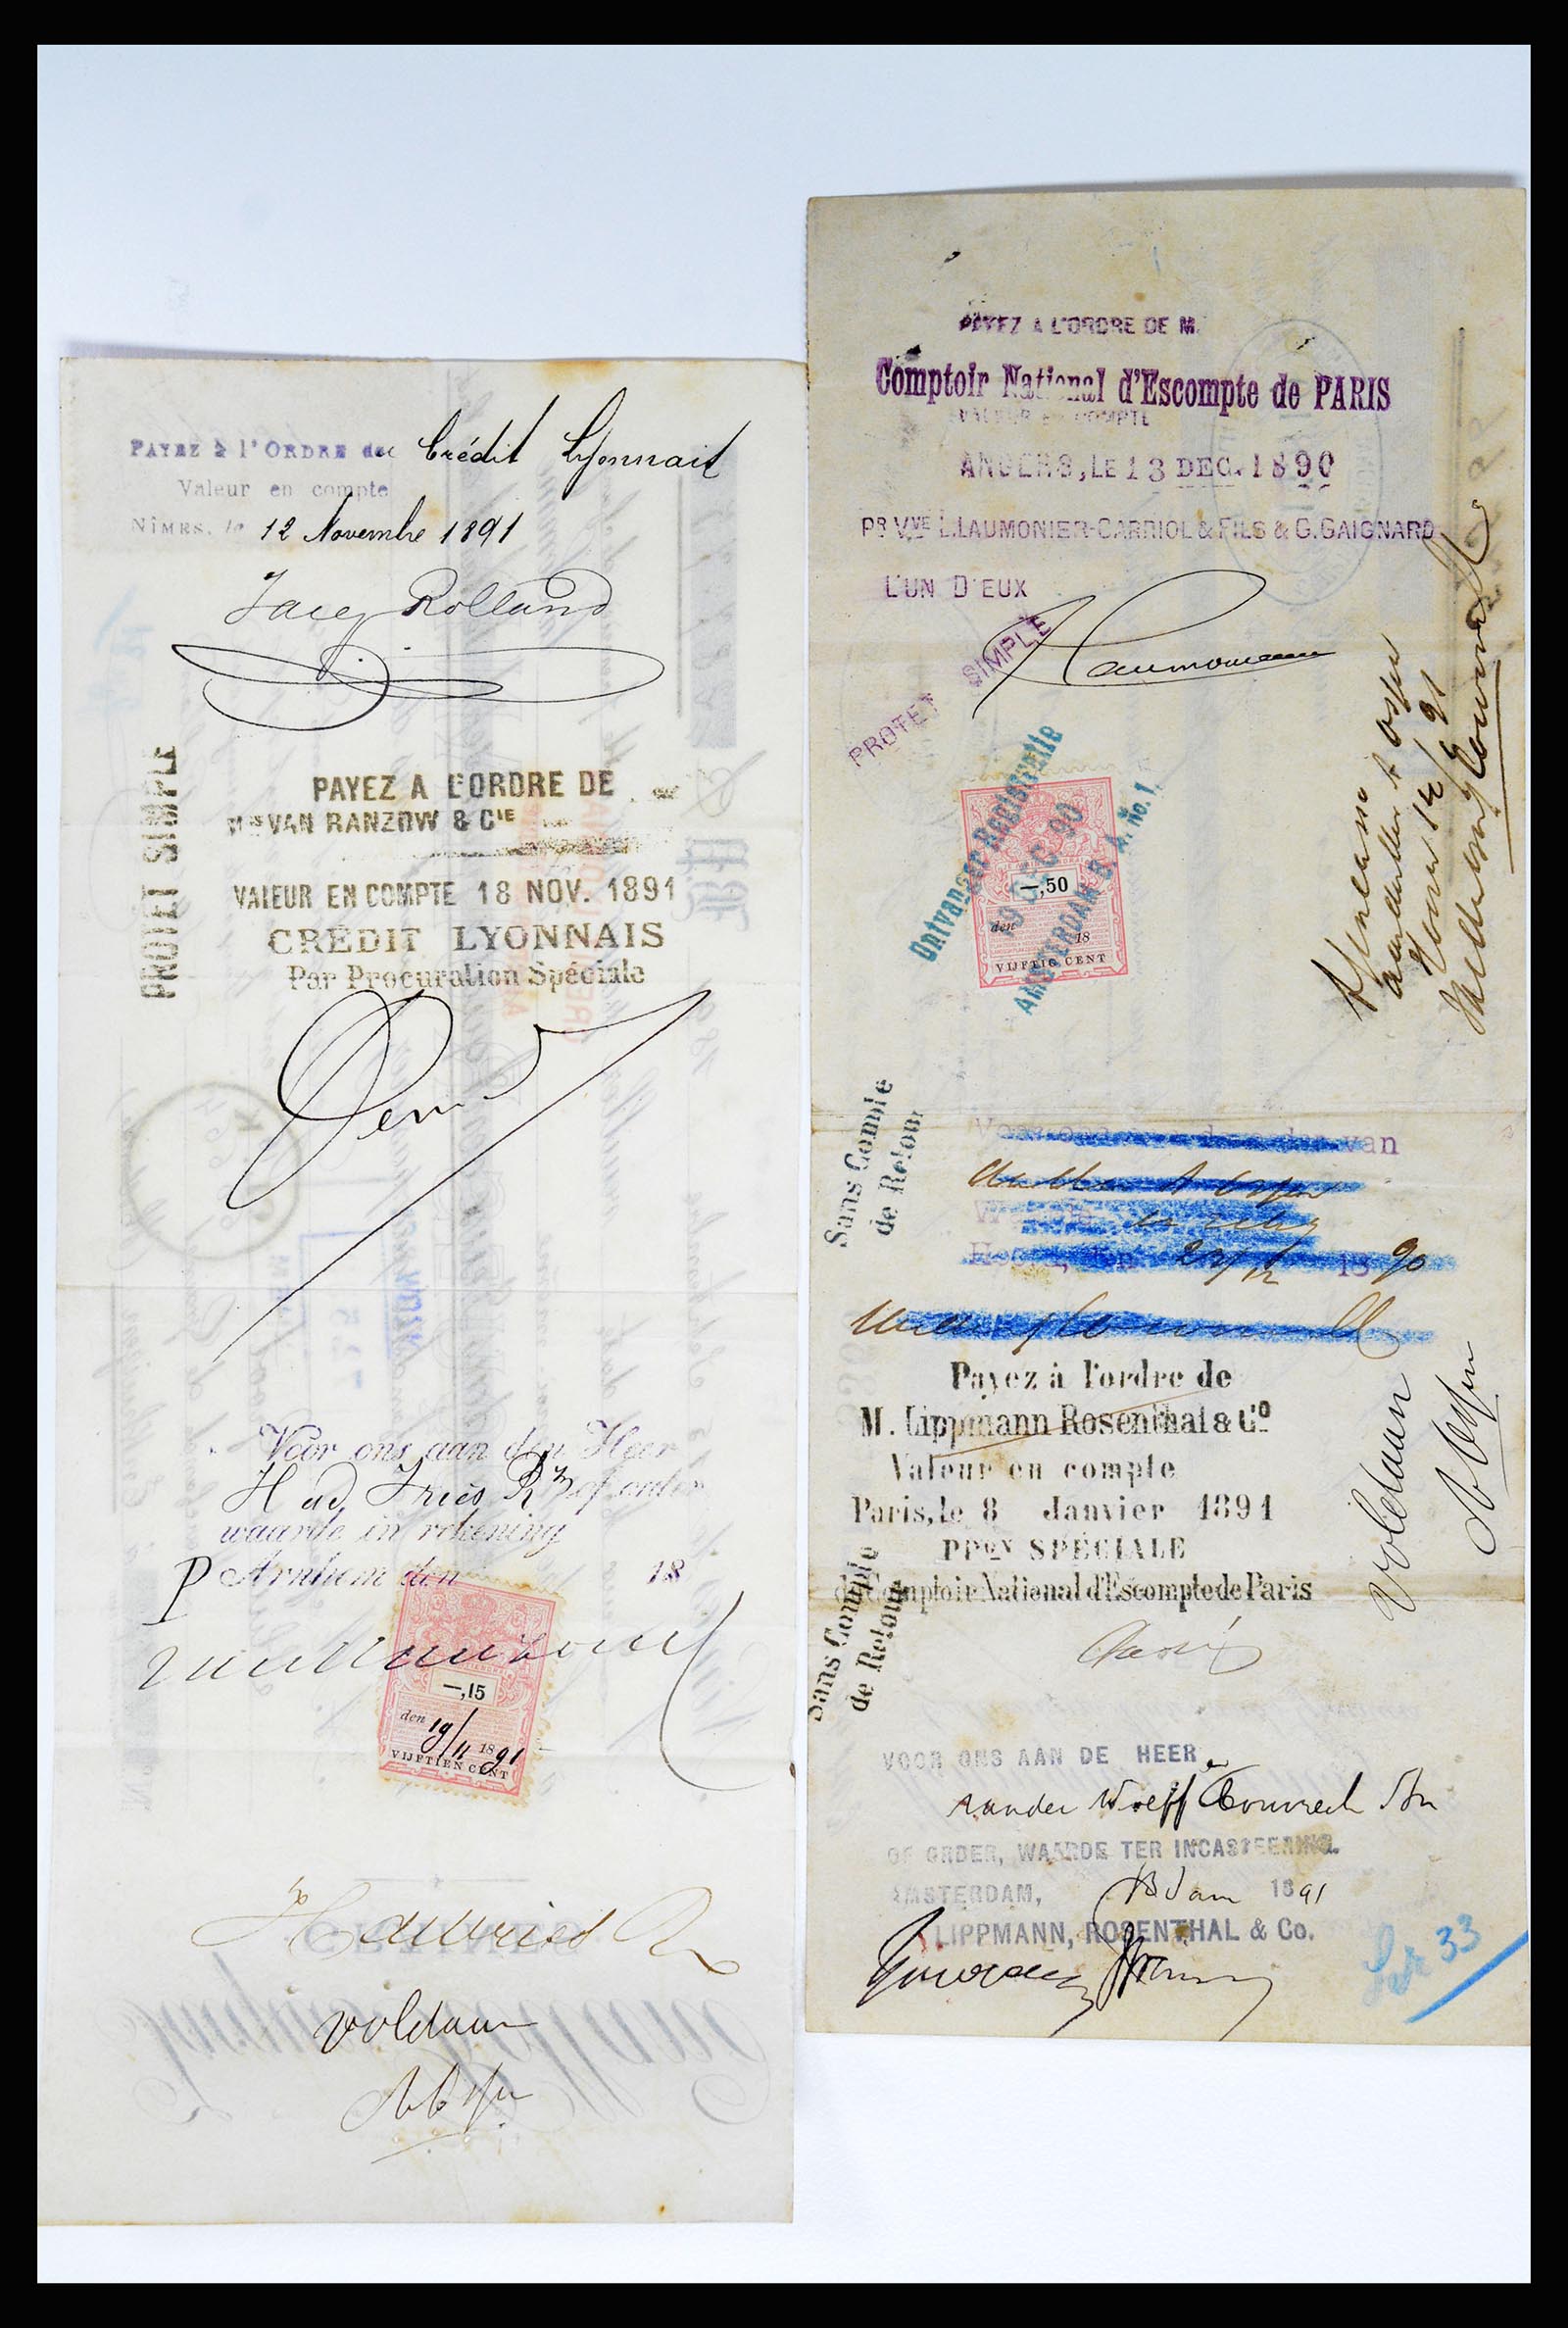 PAYEZ à l'ORDRE de Crédit Lyonnais
Valeur en compte
NÎMES, le 12 Novembre 1891
Jacq Rolland
PROTET SIMPLE
PAYEZ A L'ORDRE DE
VAN RANZOW & CIE
VALEUR EN COMPTE 18 NOV. 1891
CRÉDIT LYONNAIS
Par Procuration Spéciale
Voor ons aan den Heer
H de Vries Rz of order
waarde in rekening
P Arnhem den 18
van Ranzow
—,15
den 19/11 1891
VIJFTIEN CENT
H de Vries Rz
voldaan
PAYEZ A L'ORDRE DE M.
Comptoir National d'Escompte de PARIS
VALEUR EN COMPTE
ANGERS, LE 13 DEC. 1890
PR VVE L. LAUMONIER-CARRIOL & FILS & G. GAIGNARD
L'UN D'EUX
Laumonier
PROTET SIMPLE
Ontvanger Registratie
19 DEC 90
AMSTERDAM B. A. No. 1
—,50
den 18
VIJFTIG CENT
Sans Compte
de Retour
van
1890
Payez à l'ordre de
M. Lippmann Rosenthal & Co
Valeur en compte
Paris, le 8 Janvier 1891
PPON SPÉCIALE
du Comptoir National d'Escompte de Paris
Sans Compte
de Retour
voldaan
VOOR ONS AAN DE HEER
van der
OF ORDER, WAARDE TER INCASSEERING.
AMSTERDAM, Jan 1891
LIPPMANN, ROSENTHAL & Co.
33